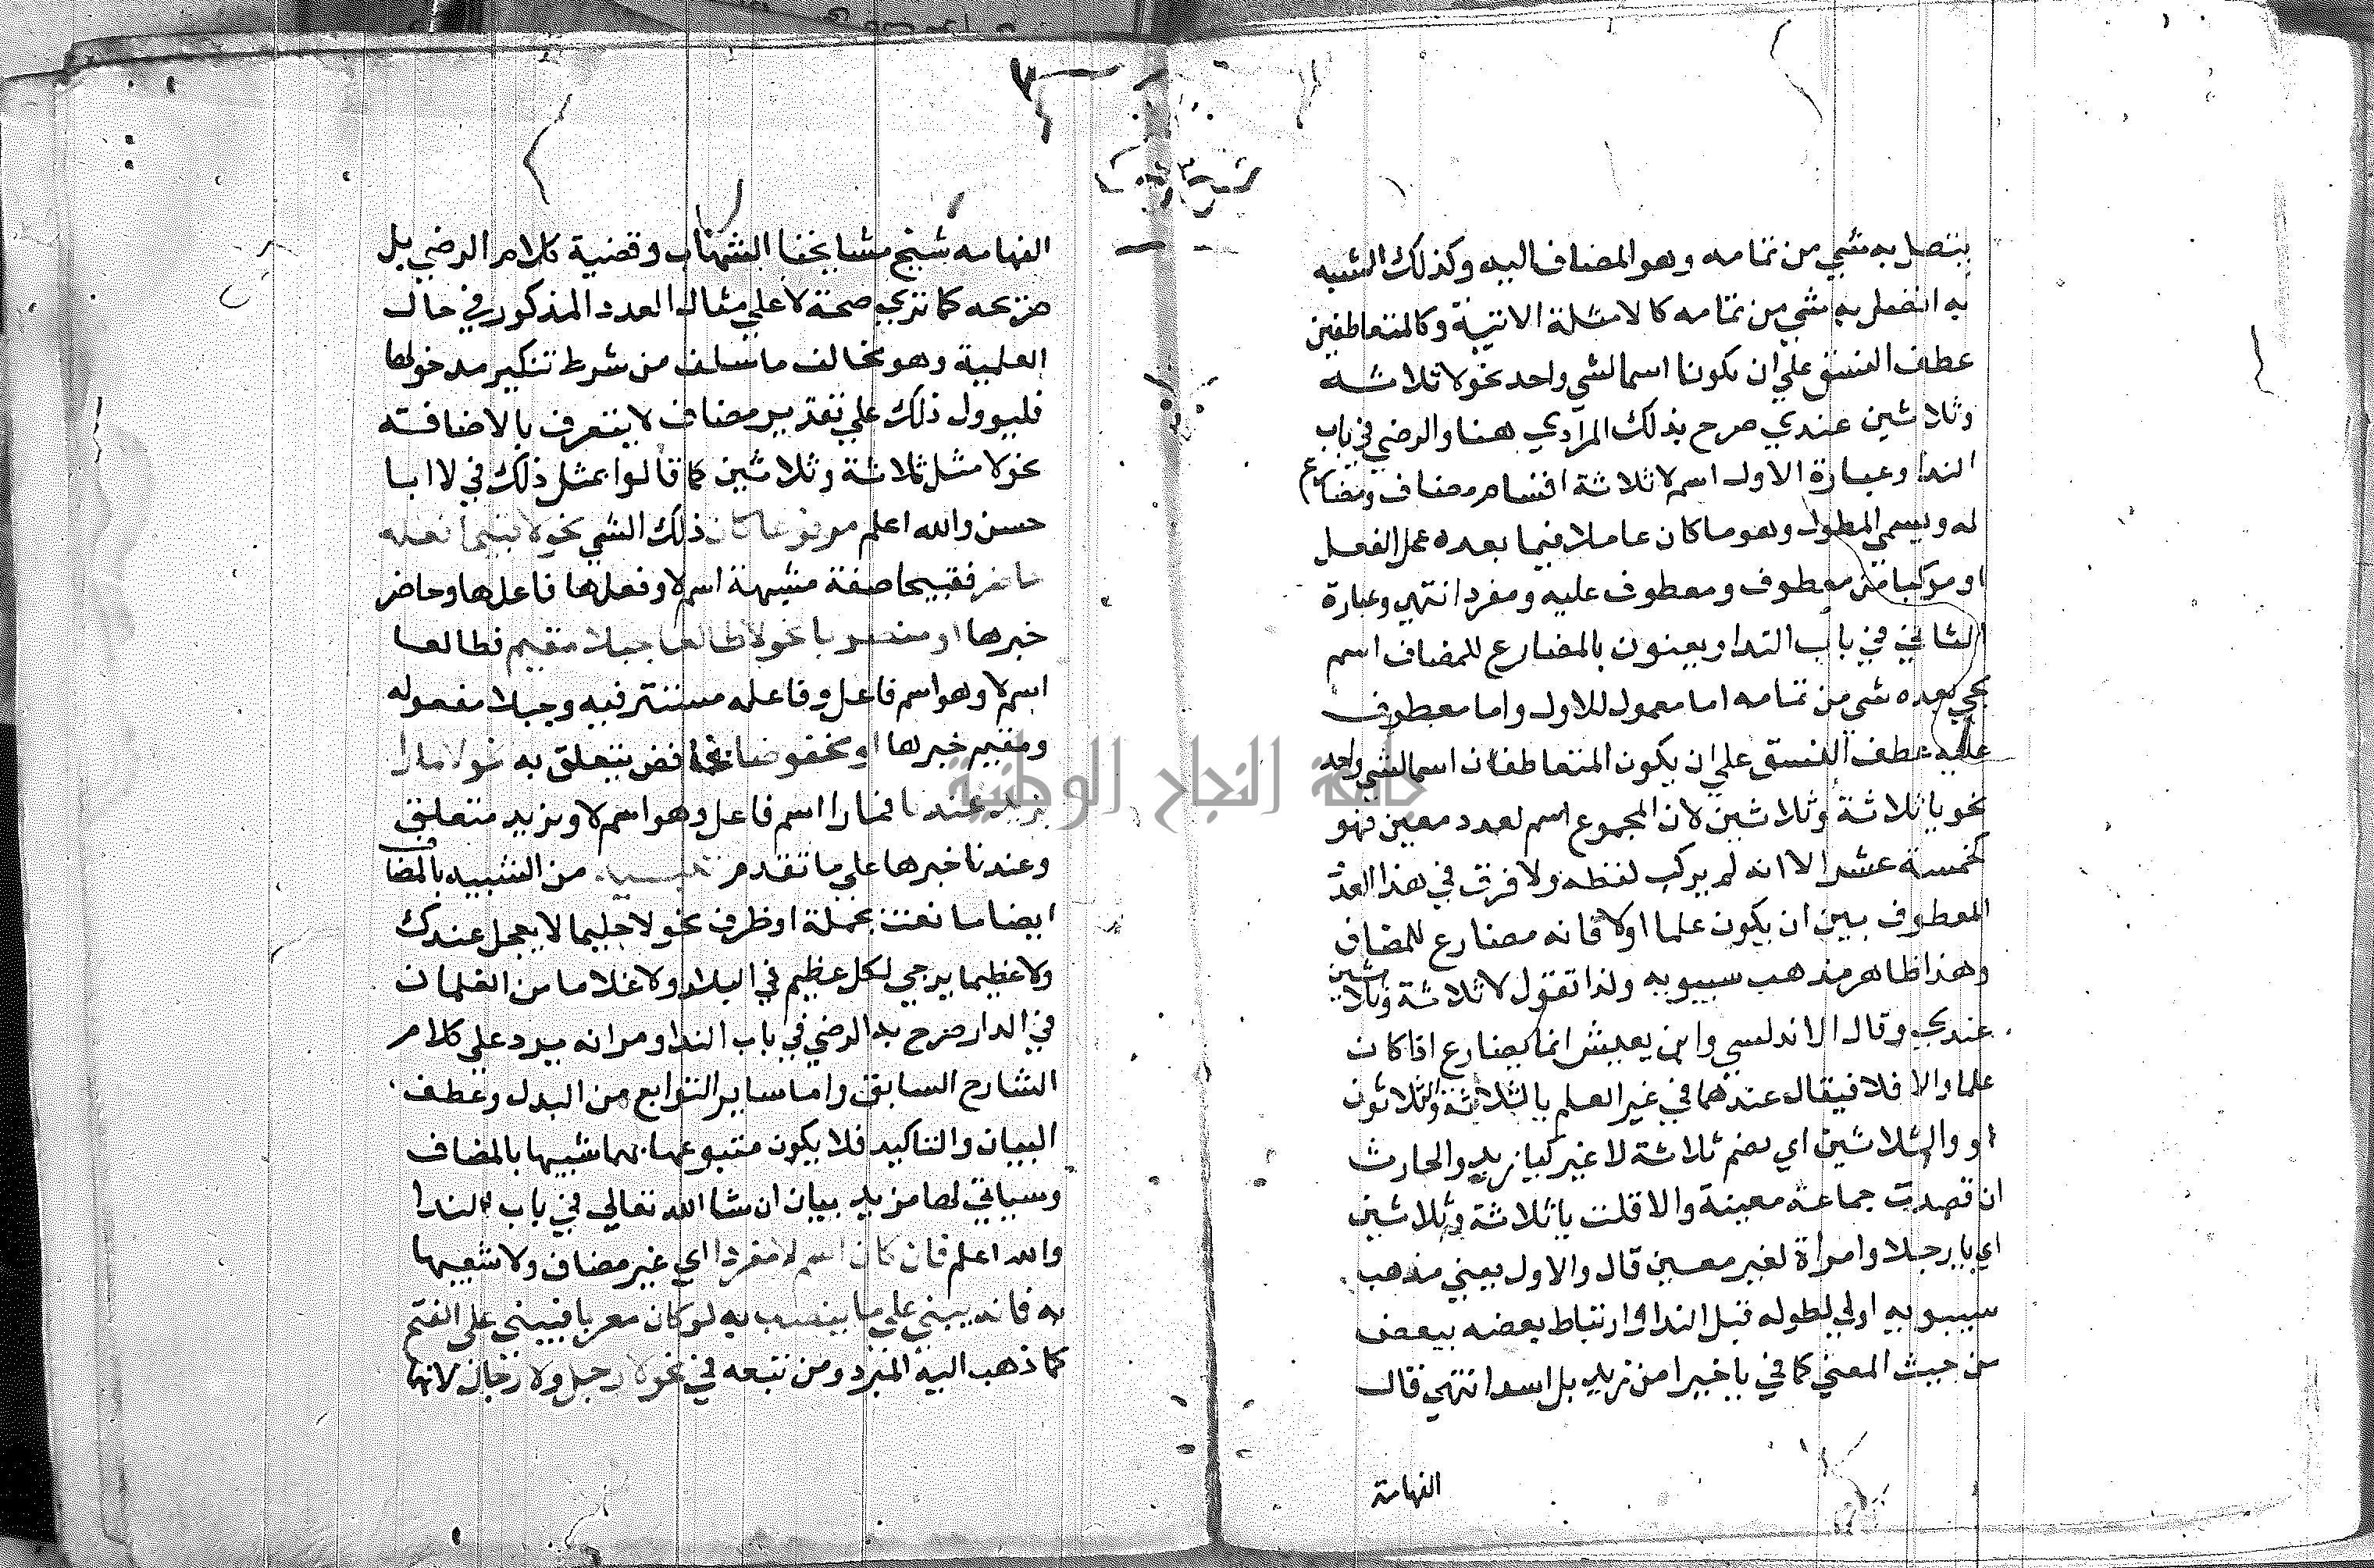 يتصل به شي من تمامه وهو المضاف اليه وكذلك الشبيه
به اتصل به شي من تمامه كالامثلة الاتية وكالمتعاطفين
عطف النسق علي ان يكونا اسما لشي واحد نحو لا ثلاثه
وثلاثين عندي صرح بذلك المرادي هنا والرضي في باب
الندا وعبارة الاول اسم لا ثلاثة اقسام مضاف ومضارع
له ويسمي المطول وهو ما كان عاملا فيما بعده عمل الفعل
او مركبا من معطوف ومعطوف عليه ومفرد انتهي وعبارة
الثاني في باب الندا ويعنون بالمضارع للمضاف اسم
يجي بعده شي من تمامه اما معمول للاول واما معطوف
عليه عطف النسق علي ان يكون المتعاطفان اسما لشي واحد
نحو يا ثلاثة وثلاثين لان المجموع اسم لعدد معين فهو
كخمسة عشر الا انه لم يركب لفظه ولا فرق في هذا العدد
المعطوف بين ان يكون علما اولا فانه مضارع للمضاف
وهذا ظاهر مذهب سيبويه ولذا تقول لا ثلاثة وثلاثين
عندي وقال الاندلسي وابن يعيش انما يضارع اذا كان
علما والا فلا فيقال عندهما في غير العلم يا ثلاثة والثلاثون
او والثلاثين اي بضم ثلاثة لا غير كيا زيد والحارث
ان قصدت جماعة معينة والا قلت يا ثلاثة وثلاثين
اي يا رجلا وامراة لغير معين قال والاول يعني مذهب
سيبويه اولي لطوله قبل الندا وارتباط بعضه ببعض
من حيث المعني كما في يا خيرا من زيد بل اسد انتهي قال
الفهامة
الفهامه شيخ مشايخنا الشهاب وقضية كلام الرضي بل
صريحه كما تري صحة لا علي مثال العدد المذكور في حال
العلمية وهو يخالف ما سلف من شرط تنكير مدخولها
فليوول ذلك علي تقدير مضاف لا يتعرف بالاضافة
نحو لا مثل ثلاثة وثلاثين كما قالوا بمثل ذلك في لا ابا
حسن والله اعلم مرفوعا كان ذلك الشي نحو لا قبيحا فعله
حاضر فقبيحا صفة مشبهة اسم لا وفعلها فاعلها وحاضر
خبرها او منصوبا نحو لا طالعا جبلا مقيم فطالعا
اسم لا وهو اسم فاعل وفاعله مستتر فيه وجبلا مفعوله
ومقيم خبرها او مخفوضا بخافض يتعلق به نحو لا مارا
بزيد عندنا فمارا اسم فاعل وهو اسم لا وبزيد متعلق
وعندنا خبرها علي ما تقدم من الشبيه بالمضاف
ايضا ما نعت بجملة او ظرف نحو لا حليما لا يعجل عندك
ولا عظيما يرجي لكل عظيم في البلاد ولا غلاما من الغلمان
في الدار صرح به الرضي في باب الندا ومر انه يرد علي كلام
الشارح السابق واما ساير التوابع من البدل وعطف
البيان والتاكيد فلا يكون متبوعها بها شبيها بالمضاف
وسياتي لها مزيد بيان ان شا الله تعالي في باب الندا
والله اعلم فان كان اسم لا مفردا اي غير مضاف ولا شبيها
به فانه يبني علي ما ينصب به لو كان معربا فيبني علي الفتح
كما ذهب اليه المبرد ومن تبعه في نحو لا رجل ولا رجال لانها